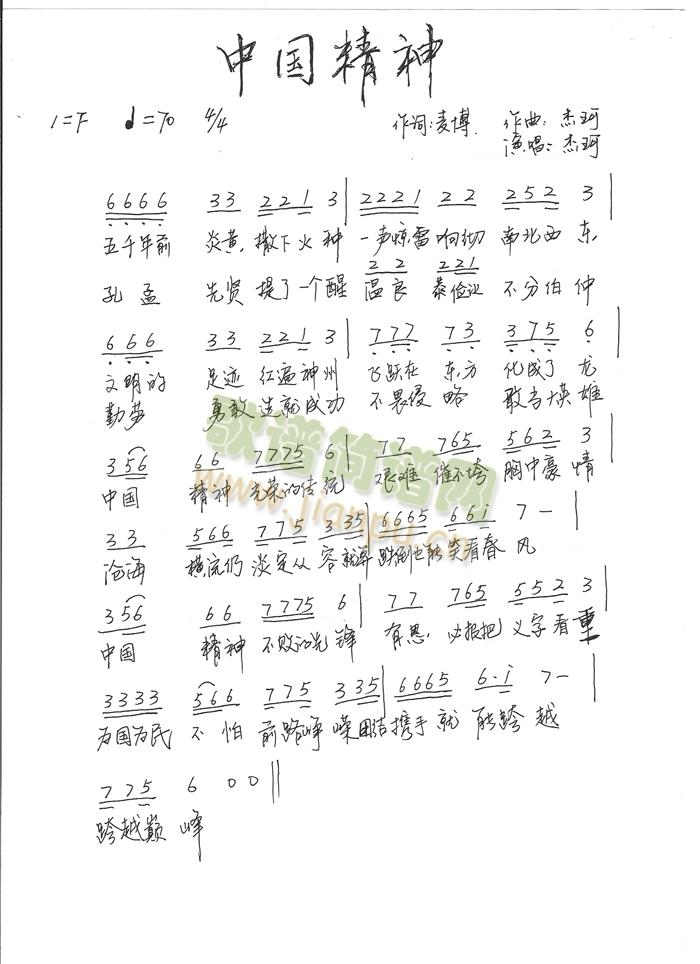 中国精神
1=F ♩=70 4/4 作词:麦博. 作曲:杰珂
演唱:杰珂
6666 33 221 3 | 2221 22 252 3 |
五千年前 炎黄,撒下火种 一声惊雷响彻 南北西东,
22 221
孔孟 先贤 提了一个醒 温良 恭俭让 不分伯仲
666 33 221 3 | 777 73 375 6 |
文明的 足迹 红遍神州 飞跃在 东方 化成了龙
勤劳 勇敢 造就成功 不畏侵略 敢当大英雄
356 66 7775 6 | 77 765 562 3 |
中国 精神 光荣的传统 艰难 催不垮 胸中豪情
33 566 775 335 | 6665 66i 7 - |
沧海 横流仍 淡定从容就算 跌倒也能笑看春风
356 66 7775 6 | 77 765 552 3 |
中国 精神 不败的先锋 有恩, 必报把 义字看重
3333 566 775 335 | 6665 6·i 7 - |
为国为民 不怕 前路峥嵘团结携手就 能跨越
775 6 0 0 ||
跨越巅峰
歌谱简谱网
www.jianpu.cn